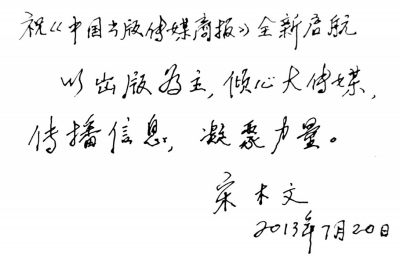 祝《中国出版传媒商报》全新启航
以出版为主,倾心大传媒,
传播信息,凝聚力量。
宋木文
2013年7月20日